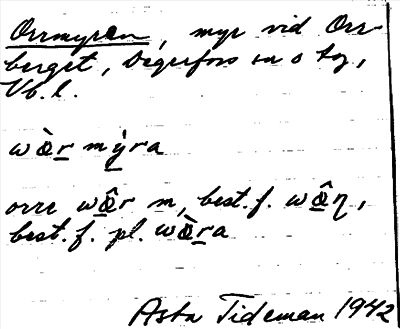 Orrmyran, myr vid Orr-
berget, Degerfors sn o tg,
Vb. l.
wæ̀r mỳra
orre wæ̂r m, best. f. wæ̂ɳ,
best. f. pl. wæ̀ra
Asta Tideman 1942